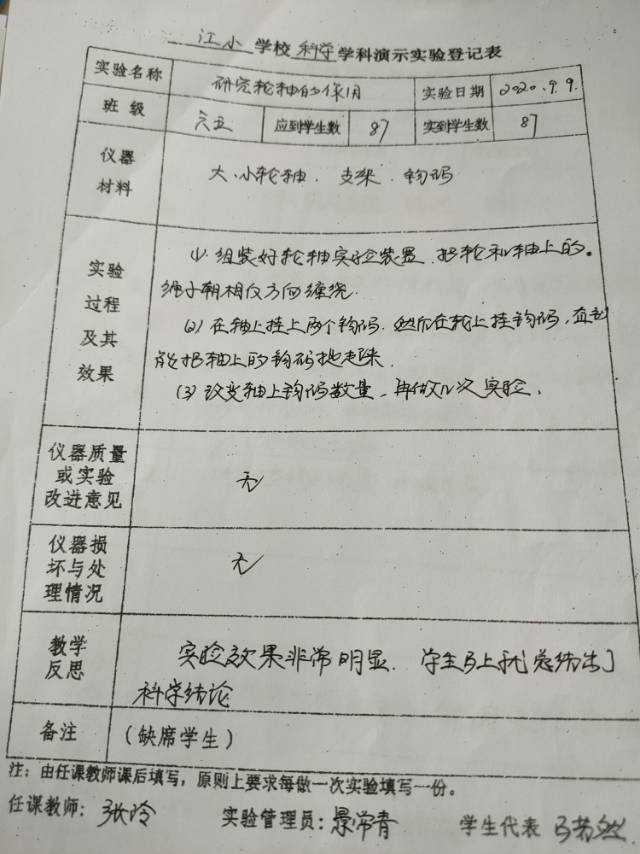 江小 学校 科学 学科演示实验登记表
实验名称 研究轮轴的作用 实验日期 2020.9.9.
班级 六五 应到学生数 87 实到学生数 87
仪器
材料
大、小轮轴、支架、钩码
实验
过程
及其
效果
(1) 组装好轮轴实验装置、把轮和轴上的
绳子朝相反方向缠绕.
(2) 在轴上挂上两个钩码.然后在轮上挂钩码,直到
能把轴上的钩码提起来.
(3) 改变轴上钩码数量,再做几次实验.
仪器质量
或实验
改进意见
无
仪器损
坏与处
理情况
无
教学
反思
实验效果非常明显.学生马上就总结出了
科学结论
备注 (缺席学生)
注:由任课教师课后填写,原则上要求每做一次实验填写一份。
任课教师:张玲 实验管理员:景常青 学生代表 马若然